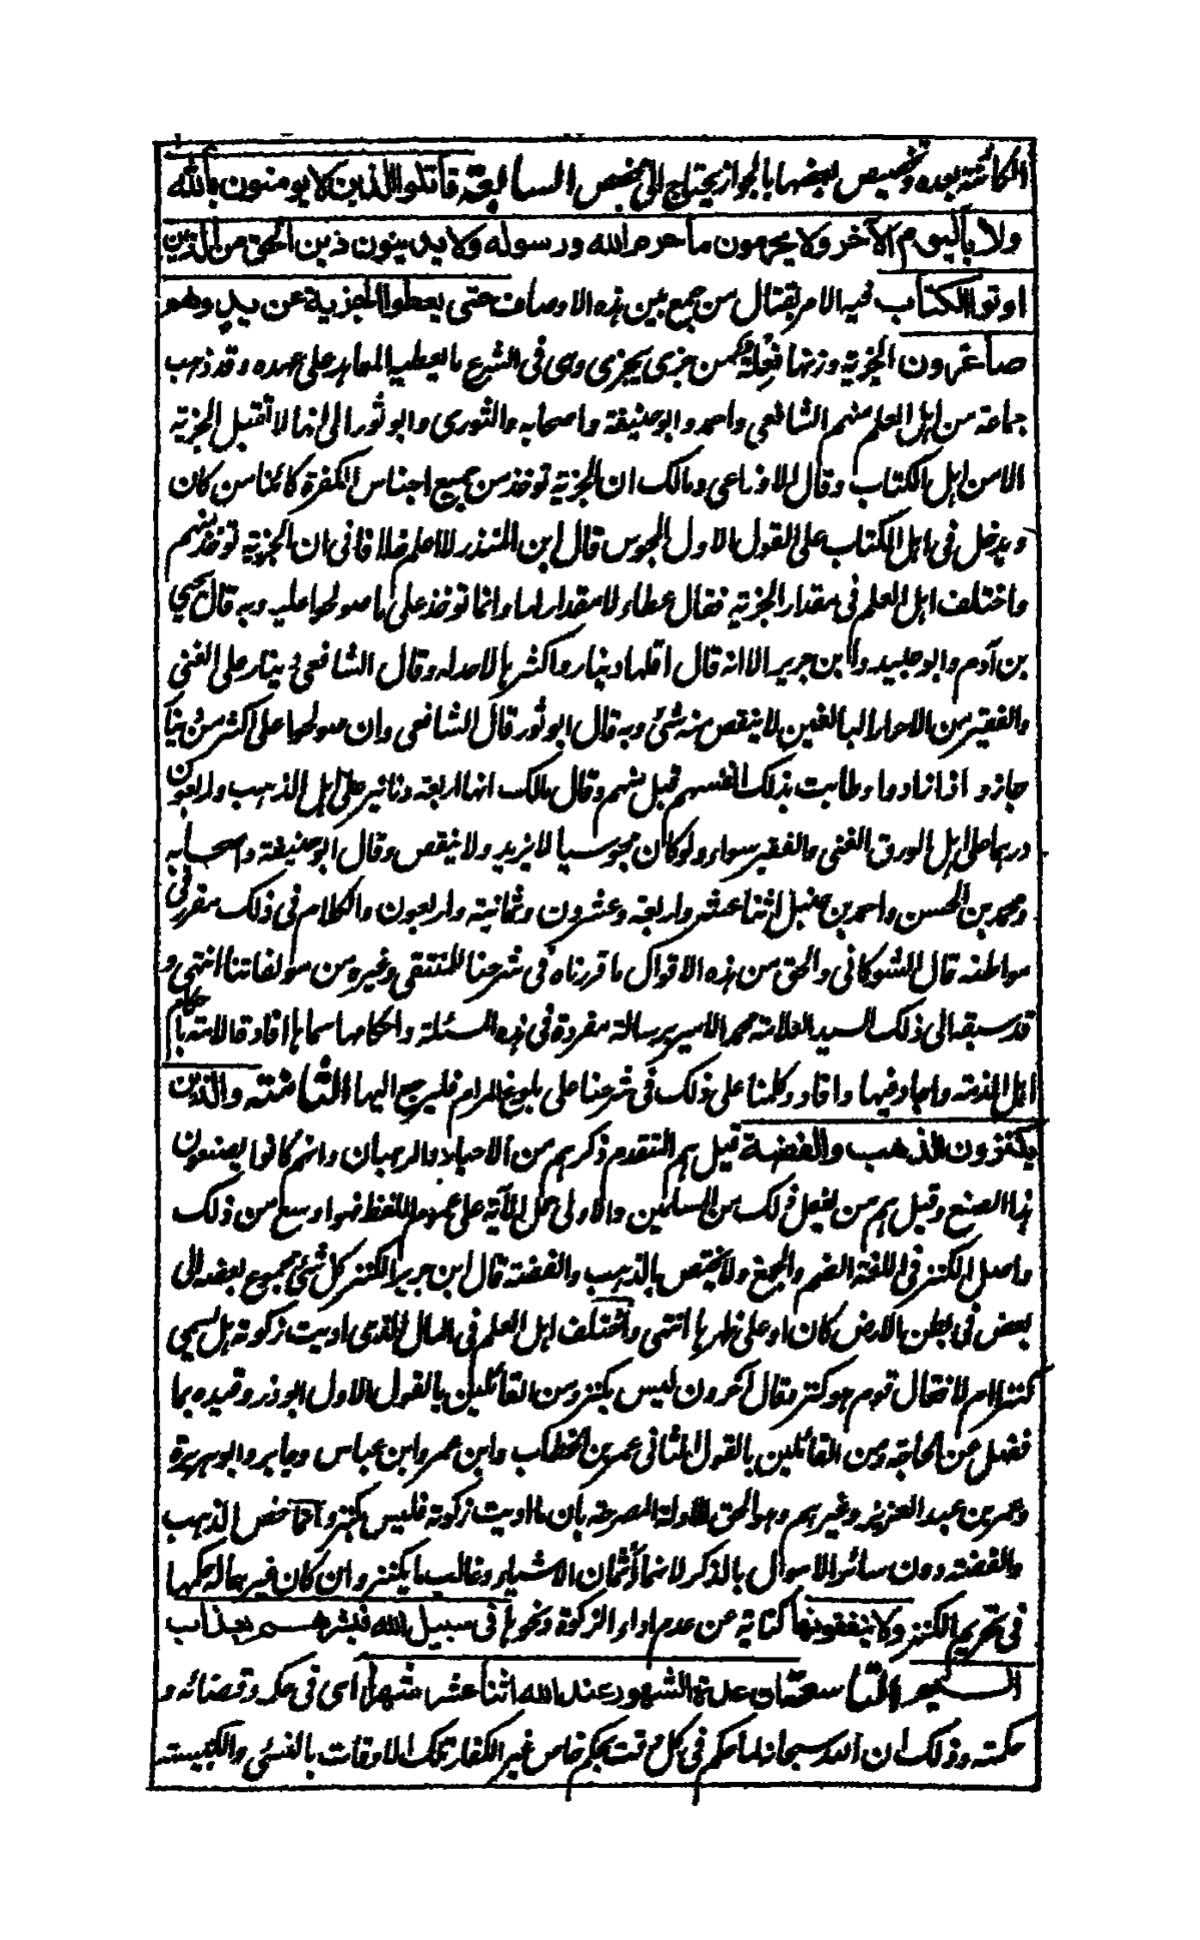 الكائنة بعده وتخصيص بعضها بالجواز يحتاج الى مخصص السابعة قاتلوا الذين لا يومنون بالله
ولا باليوم الآخر ولا يحرمون ما حرم الله ورسوله ولا يدينون دين الحق من الذين
اوتوا الكتاب فيه الامر بقتال من جمع بين هذه الاوصاف حتى يعطوا الجزية عن يد وهم
صاغرون الجزية وزنها فعلة من جزى يجزى وهى فى الشرع ما يعطيه المعاهد على عهده وقد ذهب
جماعة من اهل العلم منهم الشافعي واحمد وابو حنيفة واصحابه والثورى وابو ثور الى انها لا تقبل الجزية
الا من اهل الكتاب وقال الاوزاعى ومالك ان الجزية توخذ من جميع اجناس الكفرة كائنا من كان
ويدخل فى اهل الكتاب على القول الاول المجوس قال ابن المنذر لا اعلم خلافا فى ان الجزية توخذ منهم
واختلف اهل العلم فى مقدار الجزية فقال عطاء لا مقدار لها وانما توخذ على ما صولحوا عليه وبه قال يحيي
بن آدم وابو عبيد وابن جرير الا انه قال اقلها دينار واكثرها لا حد له وقال الشافعى دينار على الغنى
والفقير من الاحرار البالغين لا ينقص منه شئ وبه قال ابو ثور قال الشافعى وان صولحوا على اكثر من دينار
جاز واذا زادوا وطابت بذلك انفسهم قبل منهم وقال مالك انها اربعة دنانير على اهل الذهب واربعون
درهما على اهل الورق الغنى والفقير سواء ولو كان مجوسيا لا يزيد ولا ينقص وقال ابو حنيفة واصحابه
ومحمد بن الحسن واحمد بن حنبل اثنا عشر واربعة وعشرون وثمانية واربعون والكلام فى ذلك مقرر فى
مواطنه قال الشوكانى والحق من هذه الاقوال ما قررناه فى شرحنا للمنتقى وغيره من مولفاتنا انتهى و
قد سبقه الى ذلك السيد العلامة محمد الامير برسالة مفردة فى هذه المسئلة واحكامها سماها افادة الامة باحكام
اهل الذمة واجاد فيها وافاد وكلمنا على ذلك فى شرحنا على بلوغ المرام فليرجع اليها الثامنة والذين
يكنزون الذهب والفضة قيل هم المتقدم ذكرهم من الاحبار والرهبان وانهم كانوا يصنعون
هذا الصنع وقيل هم من يفعل ذلك من المسلمين والاولى حمل الآية على عموم اللفظ فهو اوسع من ذلك
واصل الكنز فى اللغة الضم والجمع ولا يختص بالذهب والفضة قال ابن جرير الكنز كل شئ مجموع بعضه الى
بعض فى بطن الارض كان او على ظهرها انتهى واختلف اهل العلم فى المال الذى اديت زكوته هل يسمى
كنزا ام لا فقال قوم هو كنز وقال آخرون ليس بكنز ومن القائلين بالقول الاول ابو ذر وقيده بما
فضل عن الحاجة ومن القائلين بالقول الثانى عمر بن الخطاب وابن عمر وابن عباس وجابر وابو هريرة
وعمر بن عبد العزيز وغيرهم وهو الحق للادلة المصرحة بان ما اديت زكوته فليس بكنز وانما خص الذهب
والفضة دون سائر الاموال بالذكر لانهما اثمان الاشياء وغالب ما يكنز وان كان غيرهما له حكمها
فى تحريم الكنز ولا ينفقونها كناية عن عدم اداء الزكوة ونحوها فى سبيل الله فبشرهم بعذاب
اليم التاسعة ان عدة الشهور عند الله اثنا عشر شهرا اى فى حكمه وقضائه و
حكمته وذلك ان الله سبحانه لما حكم فى كل وقت بحكم خاص غير الكفار تلك الاوقات بالنسئ والكبيسة